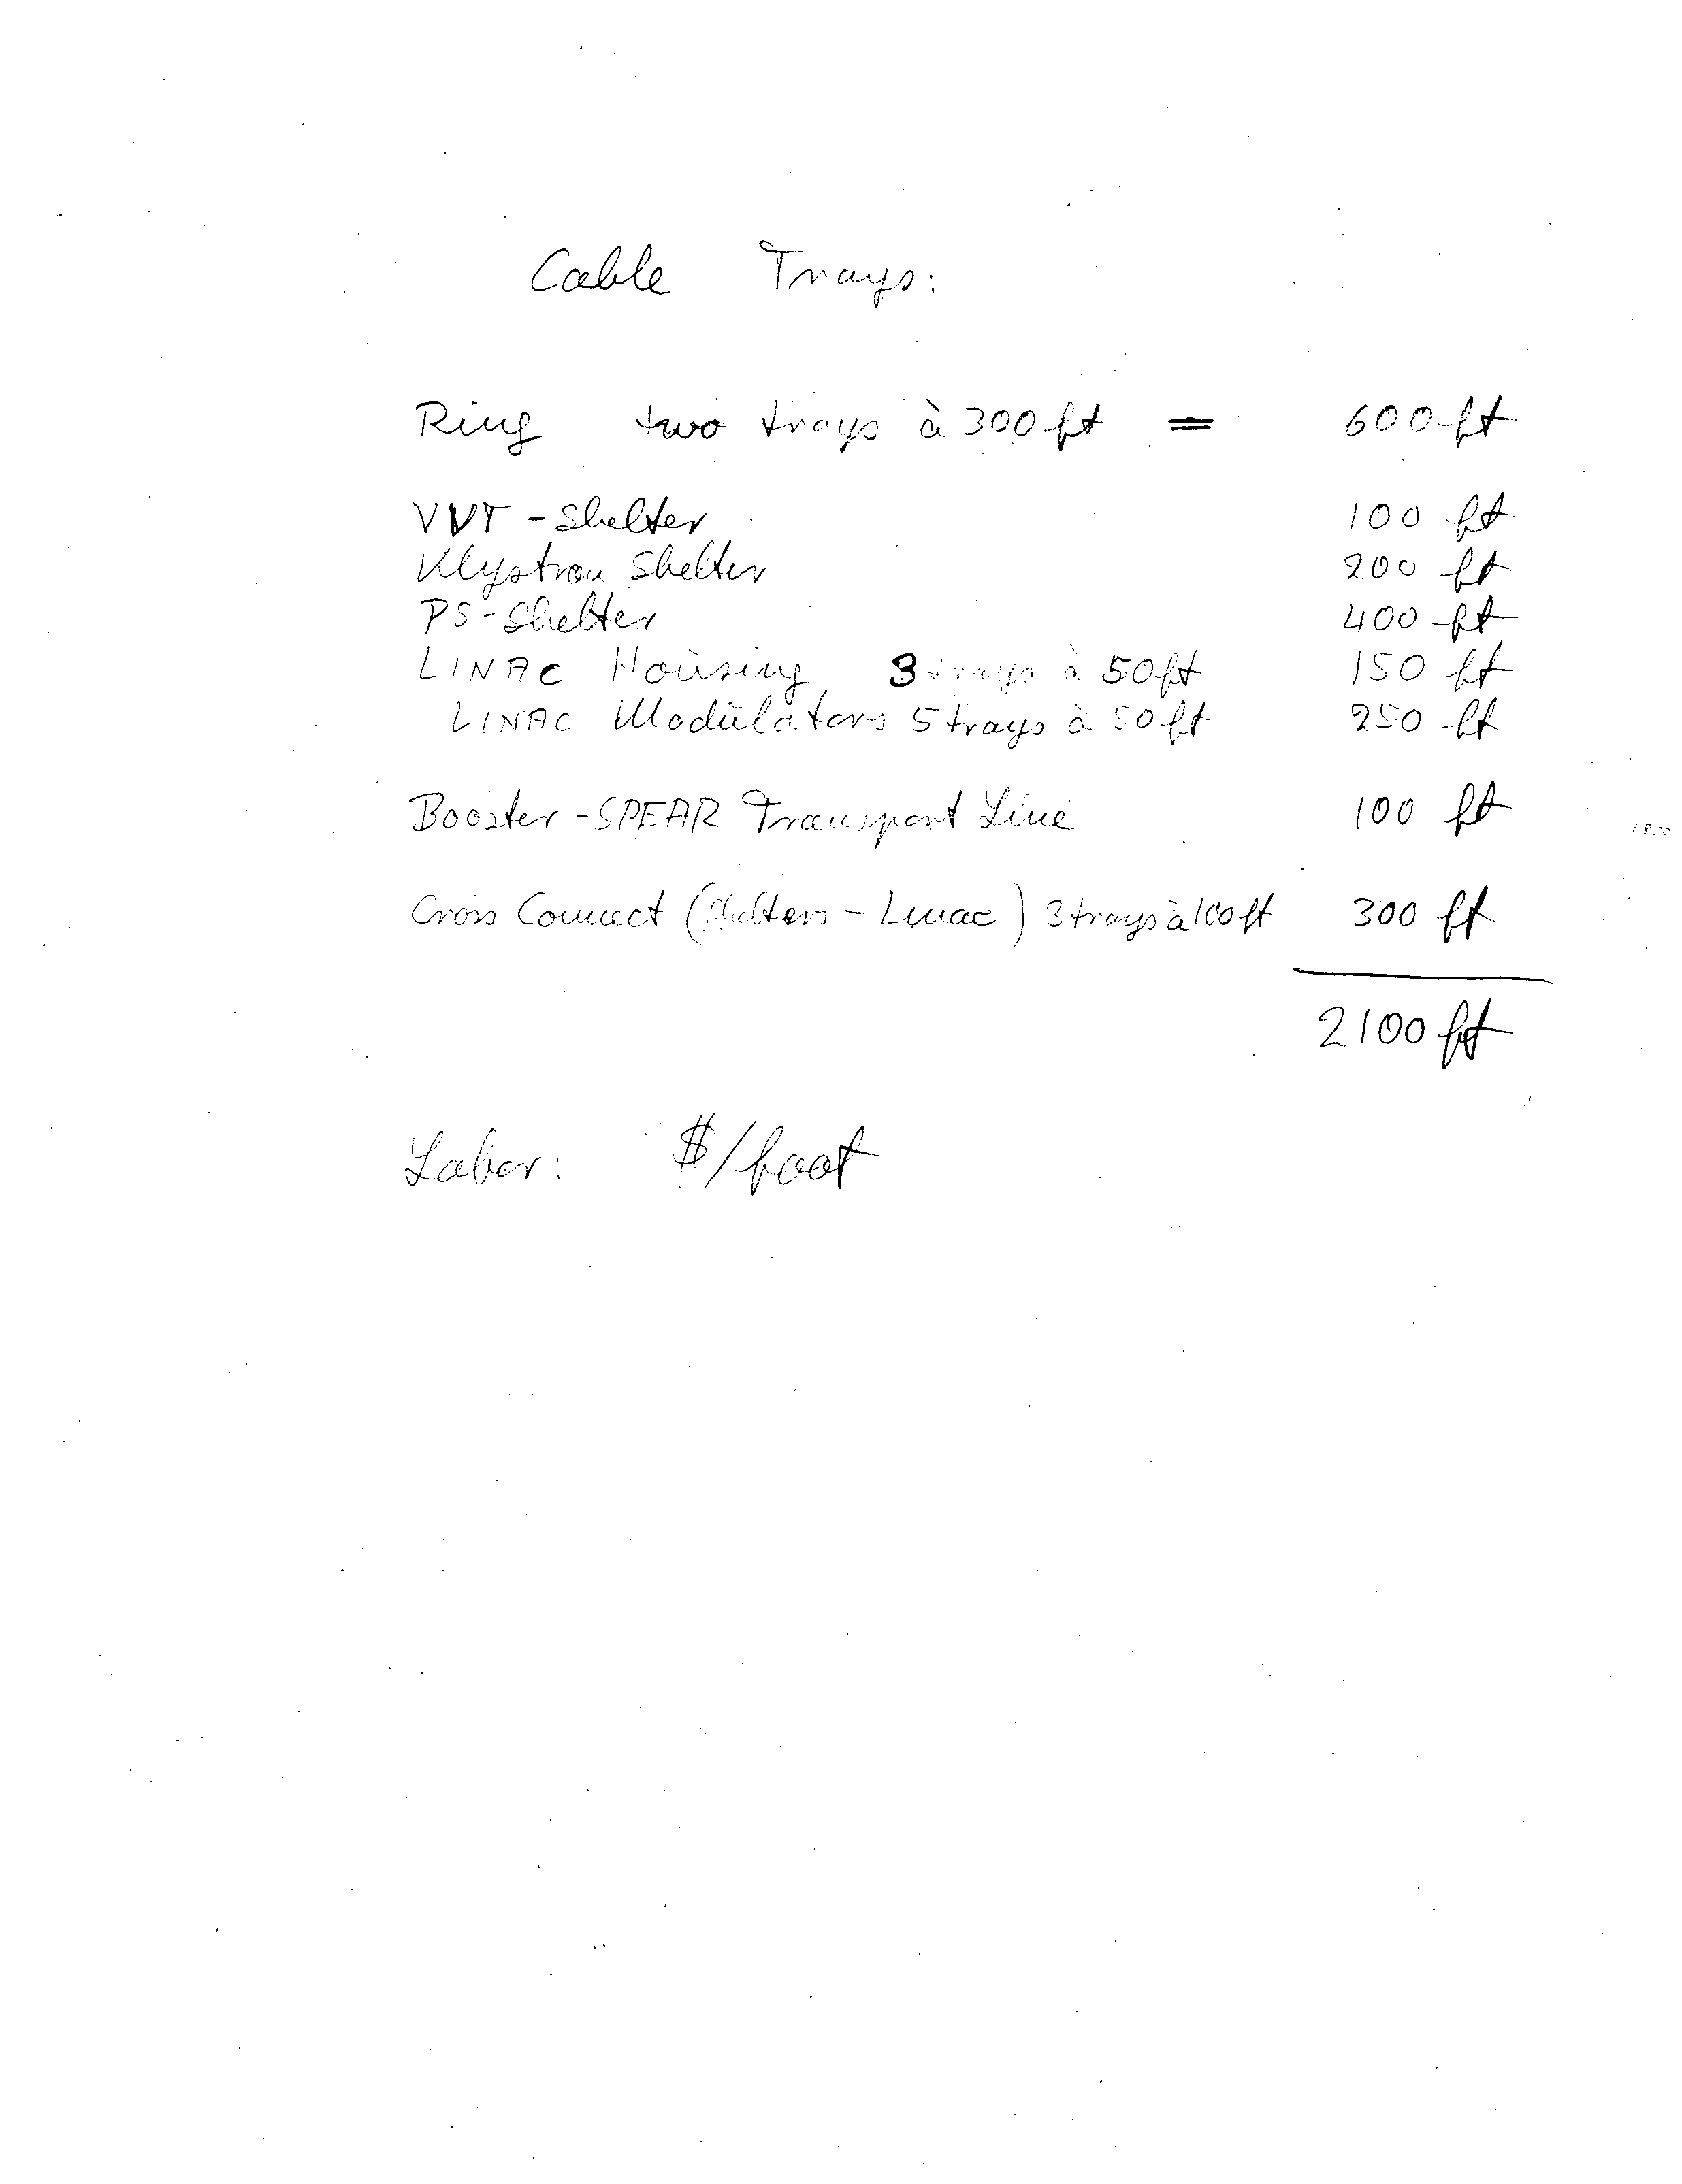 Cable Trays:
Ring two trays à 300 ft = 600 ft
VVT - Shelter 100 ft
Klystron Shelter 200 ft
PS - Shelter 400 ft
LINAC Housing 3 trays à 50 ft 150 ft
LINAC Modulators 5 trays à 50 ft 250 ft
Booster - SPEAR Transport Line 100 ft
Cross Connect (Shelters - Linac) 3 trays à 100 ft 300 ft
2100 ft
Labor: $/foot